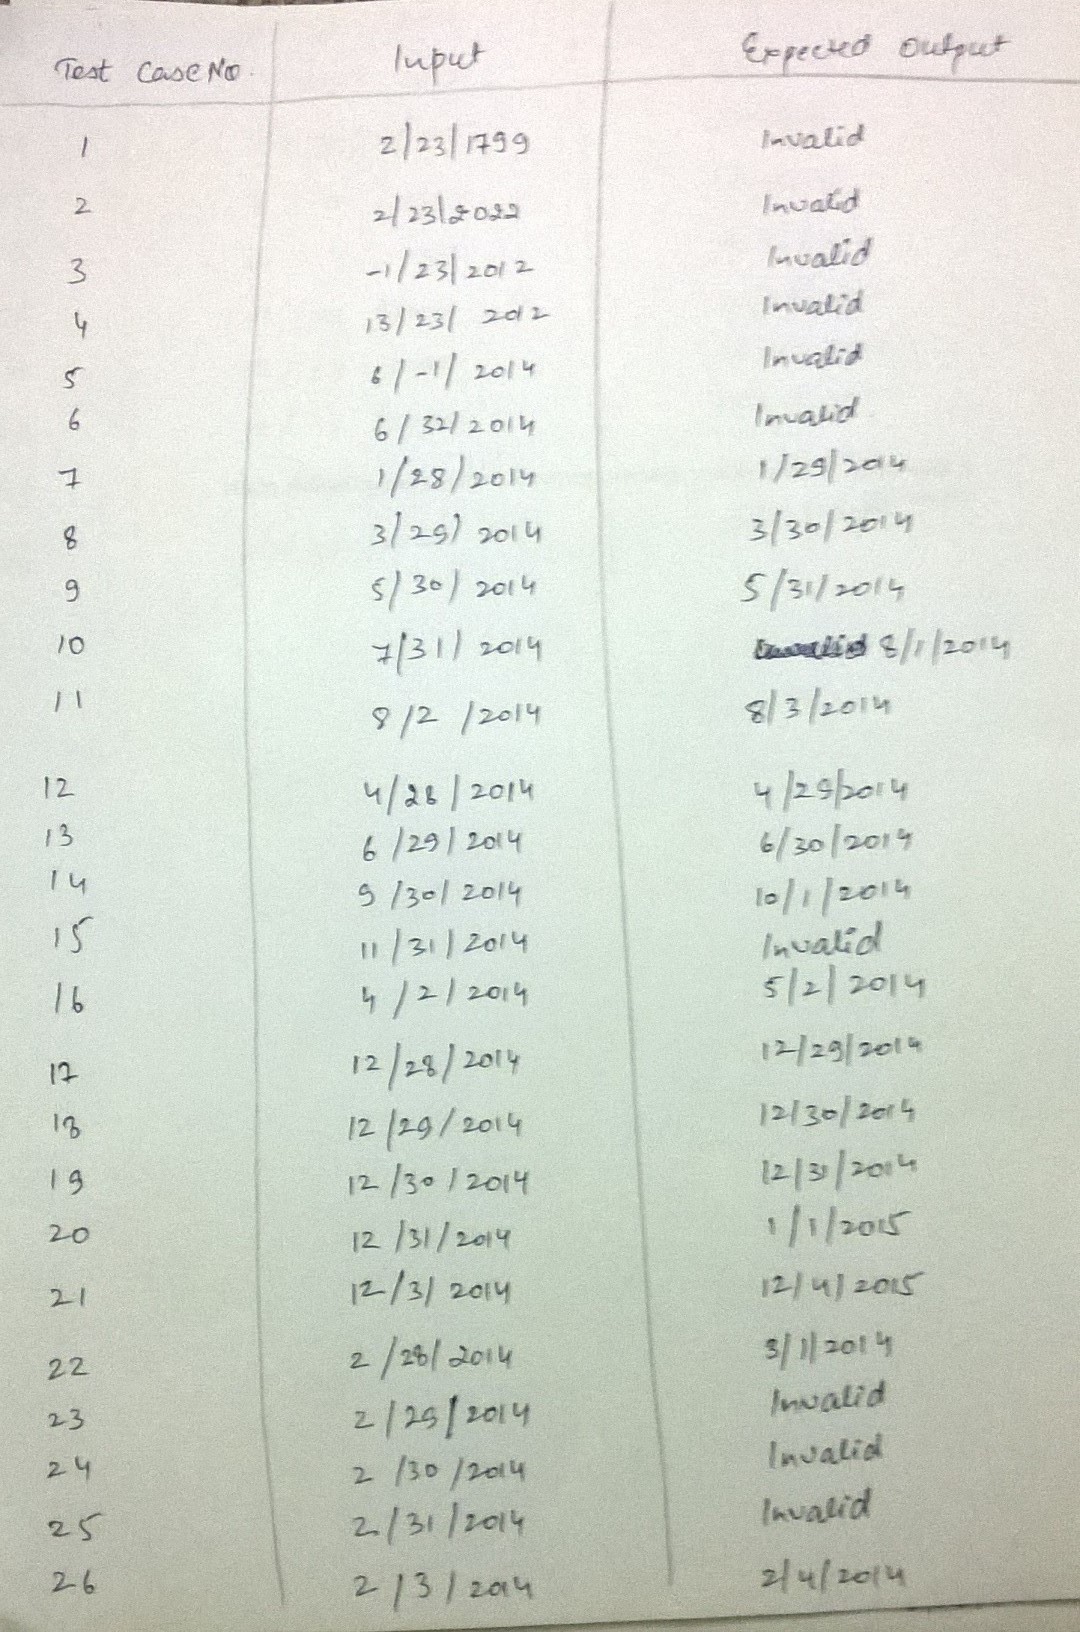 Test Case No. Input Expected Output
1 2/23/1799 Invalid
2 2/23/2022 Invalid
3 -1/23/2012 Invalid
4 13/23/2012 Invalid
5 6/-1/2014 Invalid
6 6/32/2014 Invalid
7 1/28/2014 1/29/2014
8 3/29/2014 3/30/2014
9 5/30/2014 5/31/2014
10 7/31/2014 8/1/2014
11 8/2/2014 8/3/2014
12 4/28/2014 4/29/2014
13 6/29/2014 6/30/2014
14 9/30/2014 10/1/2014
15 11/31/2014 Invalid
16 4/2/2014 5/2/2014
17 12/28/2014 12/29/2014
18 12/29/2014 12/30/2014
19 12/30/2014 12/31/2014
20 12/31/2014 1/1/2015
21 12/3/2014 12/4/2015
22 2/28/2014 3/1/2014
23 2/29/2014 Invalid
24 2/30/2014 Invalid
25 2/31/2014 Invalid
26 2/3/2014 2/4/2014